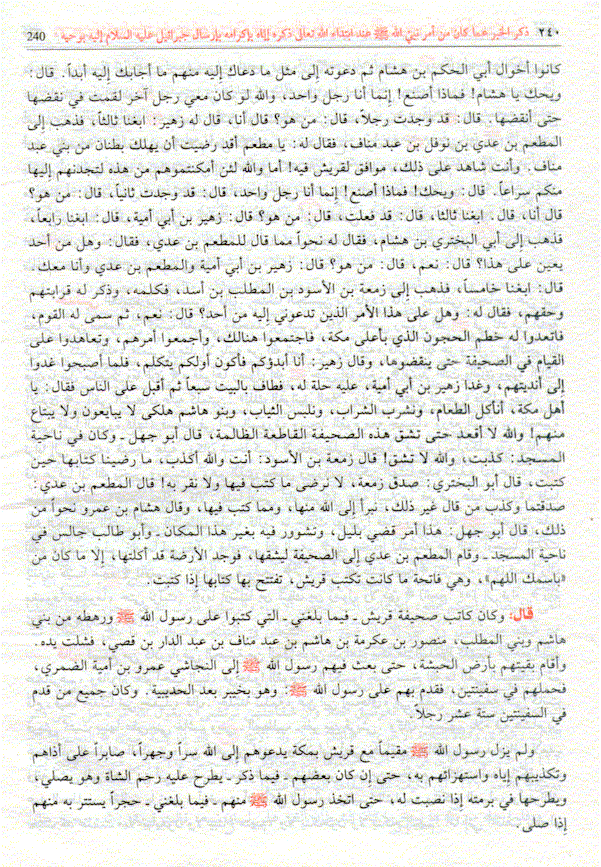 ٢٤٠ ذكر الخبر عما كان من أمر نبيّ الله ﷺ عند ابتداء الله تعالى ذكره إيّاه بإكرامه بإرسال جبرائيل عليه السلام إليه بوحيه 240
كانوا أخوال أبي الحكم بن هشام ثم دعوته إلى مثل ما دعاك إليه منهم ما أجابك إليه أبداً. قال:
ويحك يا هشام! فماذا أصنع! إنما أنا رجل واحد، والله لو كان معي رجل آخر لقمت في نقضها
حتى أنقضها. قال: قد وجدت رجلاً، قال: من هو؟ قال أنا، قال له زهير: ابغنا ثالثاً، فذهب إلى
المطعم بن عدي بن نوفل بن عبد مناف، فقال له: يا مطعم أقد رضيت أن يهلك بطنان من بني عبد
مناف. وأنت شاهد على ذلك، موافق لقريش فيه! أما والله لئن أمكنتموهم من هذه لتجدنهم إليها
منكم سراعاً. قال: ويحك! فماذا أصنع! إنما أنا رجل واحد، قال: قد وجدت ثانياً، قال: من هو؟
قال أنا، قال. ابغنا ثالثا، قال: قد فعلت، قال: من هو؟ قال: زهير بن أبي أمية، قال: ابغنا رابعاً،
فذهب إلى أبي البختري بن هشام، فقال له نحواً مما قال للمطعم بن عدي، فقال: وهل من أحد
يعين على هذا؟ قال: نعم، قال: من هو؟ قال: زهير بن أبي أمية والمطعم بن عدي وأنا معك.
قال: ابغنا خامساً، فذهب إلى زمعة بن الأسود بن المطلب بن أسد، فكلمه، وذكر له قرابتهم
وحقهم، فقال له: وهل على هذا الأمر الذين تدعوني إليه من أحد؟ قال: نعم، ثم سمى له القوم،
فاتعدوا له خطم الحجون الذي بأعلى مكة، فاجتمعوا هنالك، وأجمعوا أمرهم، وتعاهدوا على
القيام في الصحيفة حتى ينقضوها، وقال زهير: أنا أبدؤكم فأكون أولكم يتكلم، فلما أصبحوا غدوا
إلى أنديتهم، وغدا زهير بن أبي أمية، عليه حلة له، فطاف بالبيت سبعاً ثم أقبل على الناس فقال: يا
أهل مكة، أنأكل الطعام، ونشرب الشراب، ونلبس الثياب، وبنو هاشم هلكى لا يبايعون ولا يبتاع
منهم! والله لا أقعد حتى تشق هذه الصحيفة القاطعة الظالمة، قال أبو جهل ـ وكان في ناحية
المسجد: كذبت، والله لا تشق! قال زمعة بن الأسود: أنت والله أكذب، ما رضينا كتابها حين
كتبت، قال أبو البختري: صدق زمعة، لا نرضى ما كتب فيها ولا نقر به! قال المطعم بن عدي:
صدقتما وكذب من قال غير ذلك، نبرأ إلى الله منها، ومما كتب فيها، وقال هشام بن عمرو نحواً من
ذلك، قال أبو جهل: هذا أمر قضي بليل، وتشوور فيه بغير هذا المكان ـ وأبو طالب جالس في
ناحية المسجد ـ وقام المطعم بن عدي إلى الصحيفة ليشقها، فوجد الأرضة قد أكلتها، إلا ما كان من
«باسمك اللهم»، وهي فاتحة ما كانت تكتب قريش، تفتتح بها كتابها إذا كتبت.
قال: وكان كاتب صحيفة قريش ـ فيما بلغني ـ التي كتبوا على رسول الله ﷺ ورهطه من بني
هاشم وبني المطلب، منصور بن عكرمة بن هاشم بن عبد مناف بن عبد الدار بن قصي، فشلت يده.
وأقام بقيتهم بأرض الحبشة، حتى بعث فيهم رسول الله ﷺ إلى النجاشي عمرو بن أمية الضمري،
فحملهم في سفينتين، فقدم بهم على رسول الله ﷺ: وهو بخيبر بعد الحديبية. وكان جميع من قدم
في السفينتين ستة عشر رجلاً.
ولم يزل رسول الله ﷺ مقيماً مع قريش بمكة يدعوهم إلى الله سراً وجهراً، صابراً على أذاهم
وتكذيبهم إياه واستهزائهم به، حتى إن كان بعضهم ـ فيما ذكر ـ يطرح عليه رحم الشاة وهو يصلي،
ويطرحها في برمته إذا نصبت له، حتى اتخذ رسول الله ﷺ منهم ـ فيما بلغني ـ حجراً يستتر به منهم
إذا صلى.